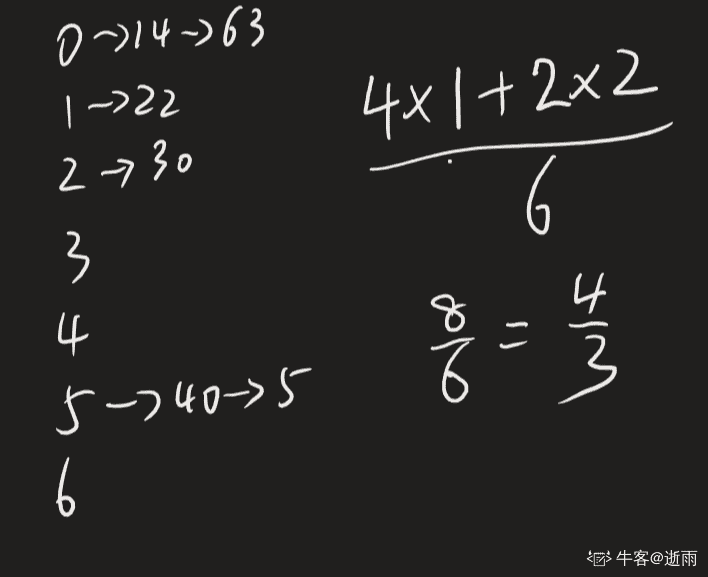 0→14→63
1→22
2→30
3
4
5→40→5
6
4×1+2×2
6
8/6 = 4/3
牛客@逝雨